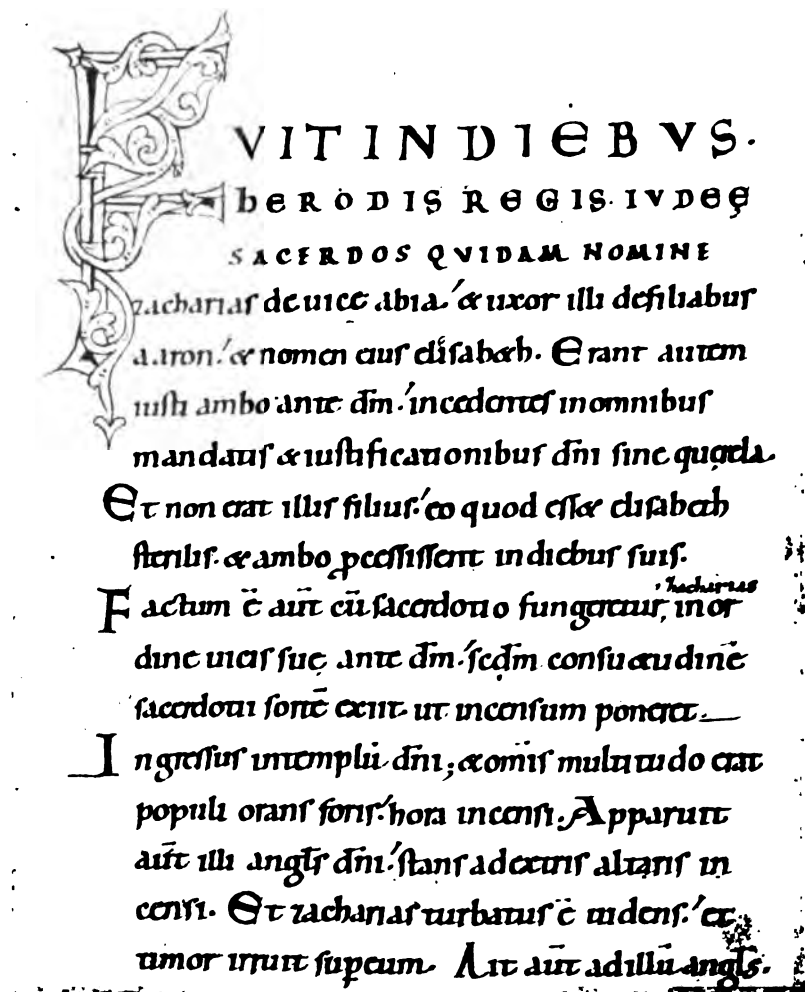 FVIT IN DIEBVS.
hERODIS REGIS. IVDEĘ
SACERDOS QVIDAM NOMINE
zacharias de uice abia.' & uxor illi defiliabus
aaron.' & nomen eius elisab&h. Erant autem
iusti ambo ante dm̄.' incedentes inomnibus
mandatis & iustificationibus dn̄i sine querela.
Et non erat illis filius.' eo quod ess& elisabeth
sterilis. & ambo ꝓcessissent indiebus suis.
Factum ē aut̄ cū sacerdotio fungeretur, zacharias inor
dine uicis suę ante dm̄.' scd̄m consu&udinē
sacerdotii sortē exiit ut incensum poneret.
Ingressus intemplū dn̄i; & om̄is multitudo erat
populi orans foris.' hora incensi. Apparuit
aut̄ illi angl̄s dn̄i.' stans adextris altaris in
censi. Et zacharias turbatus ē uidens.' et
timor irruit sup̱ eum. Ait aut̄ adillū angl̄s.